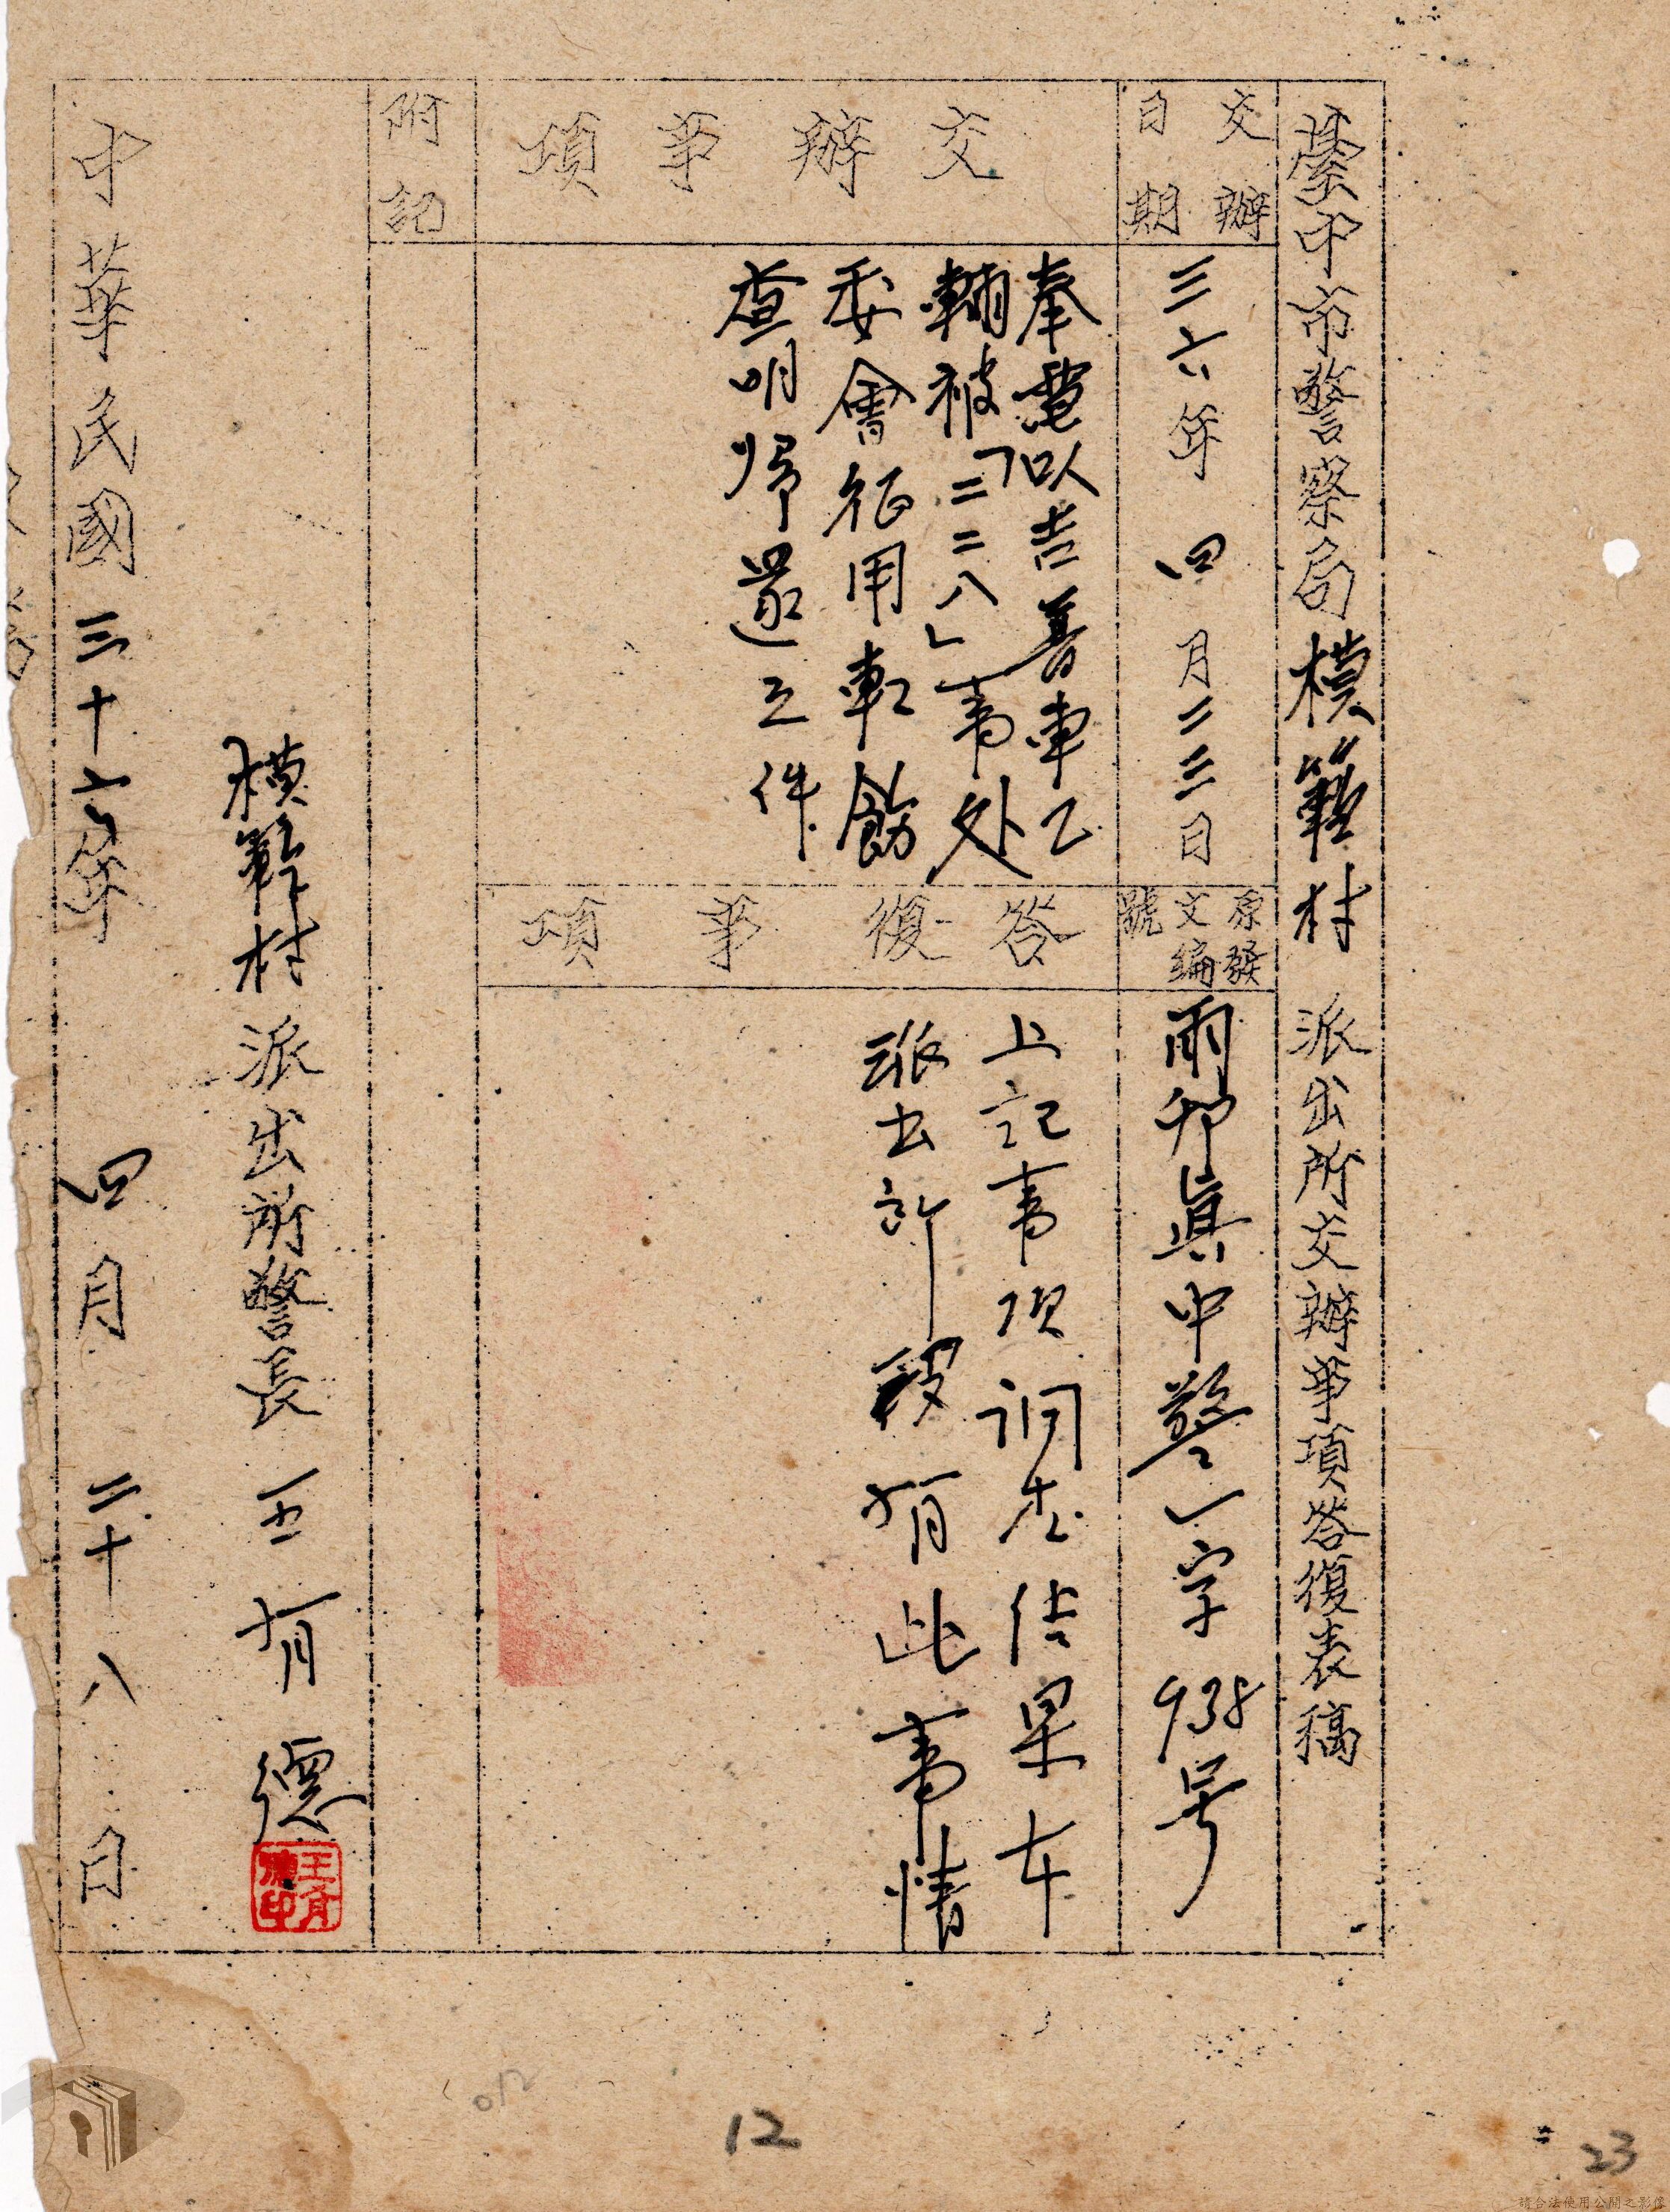 臺中市警察局模範村派出所交辦事項答復表稿
交辦日期
三六年四月二三日
原發文編號
雨卯真中警一字938号
交辦事項
奉電以吉普車乙
輛被「二二八」事处
委會征用軋飭
查明归還之件
答復事項
上記事項調查结果本
派出所没有此事情
附記
模範村派出所警長王有德
王有德印
中華民國三十六年四月二十八日
12
23
請合法使用公開之影像